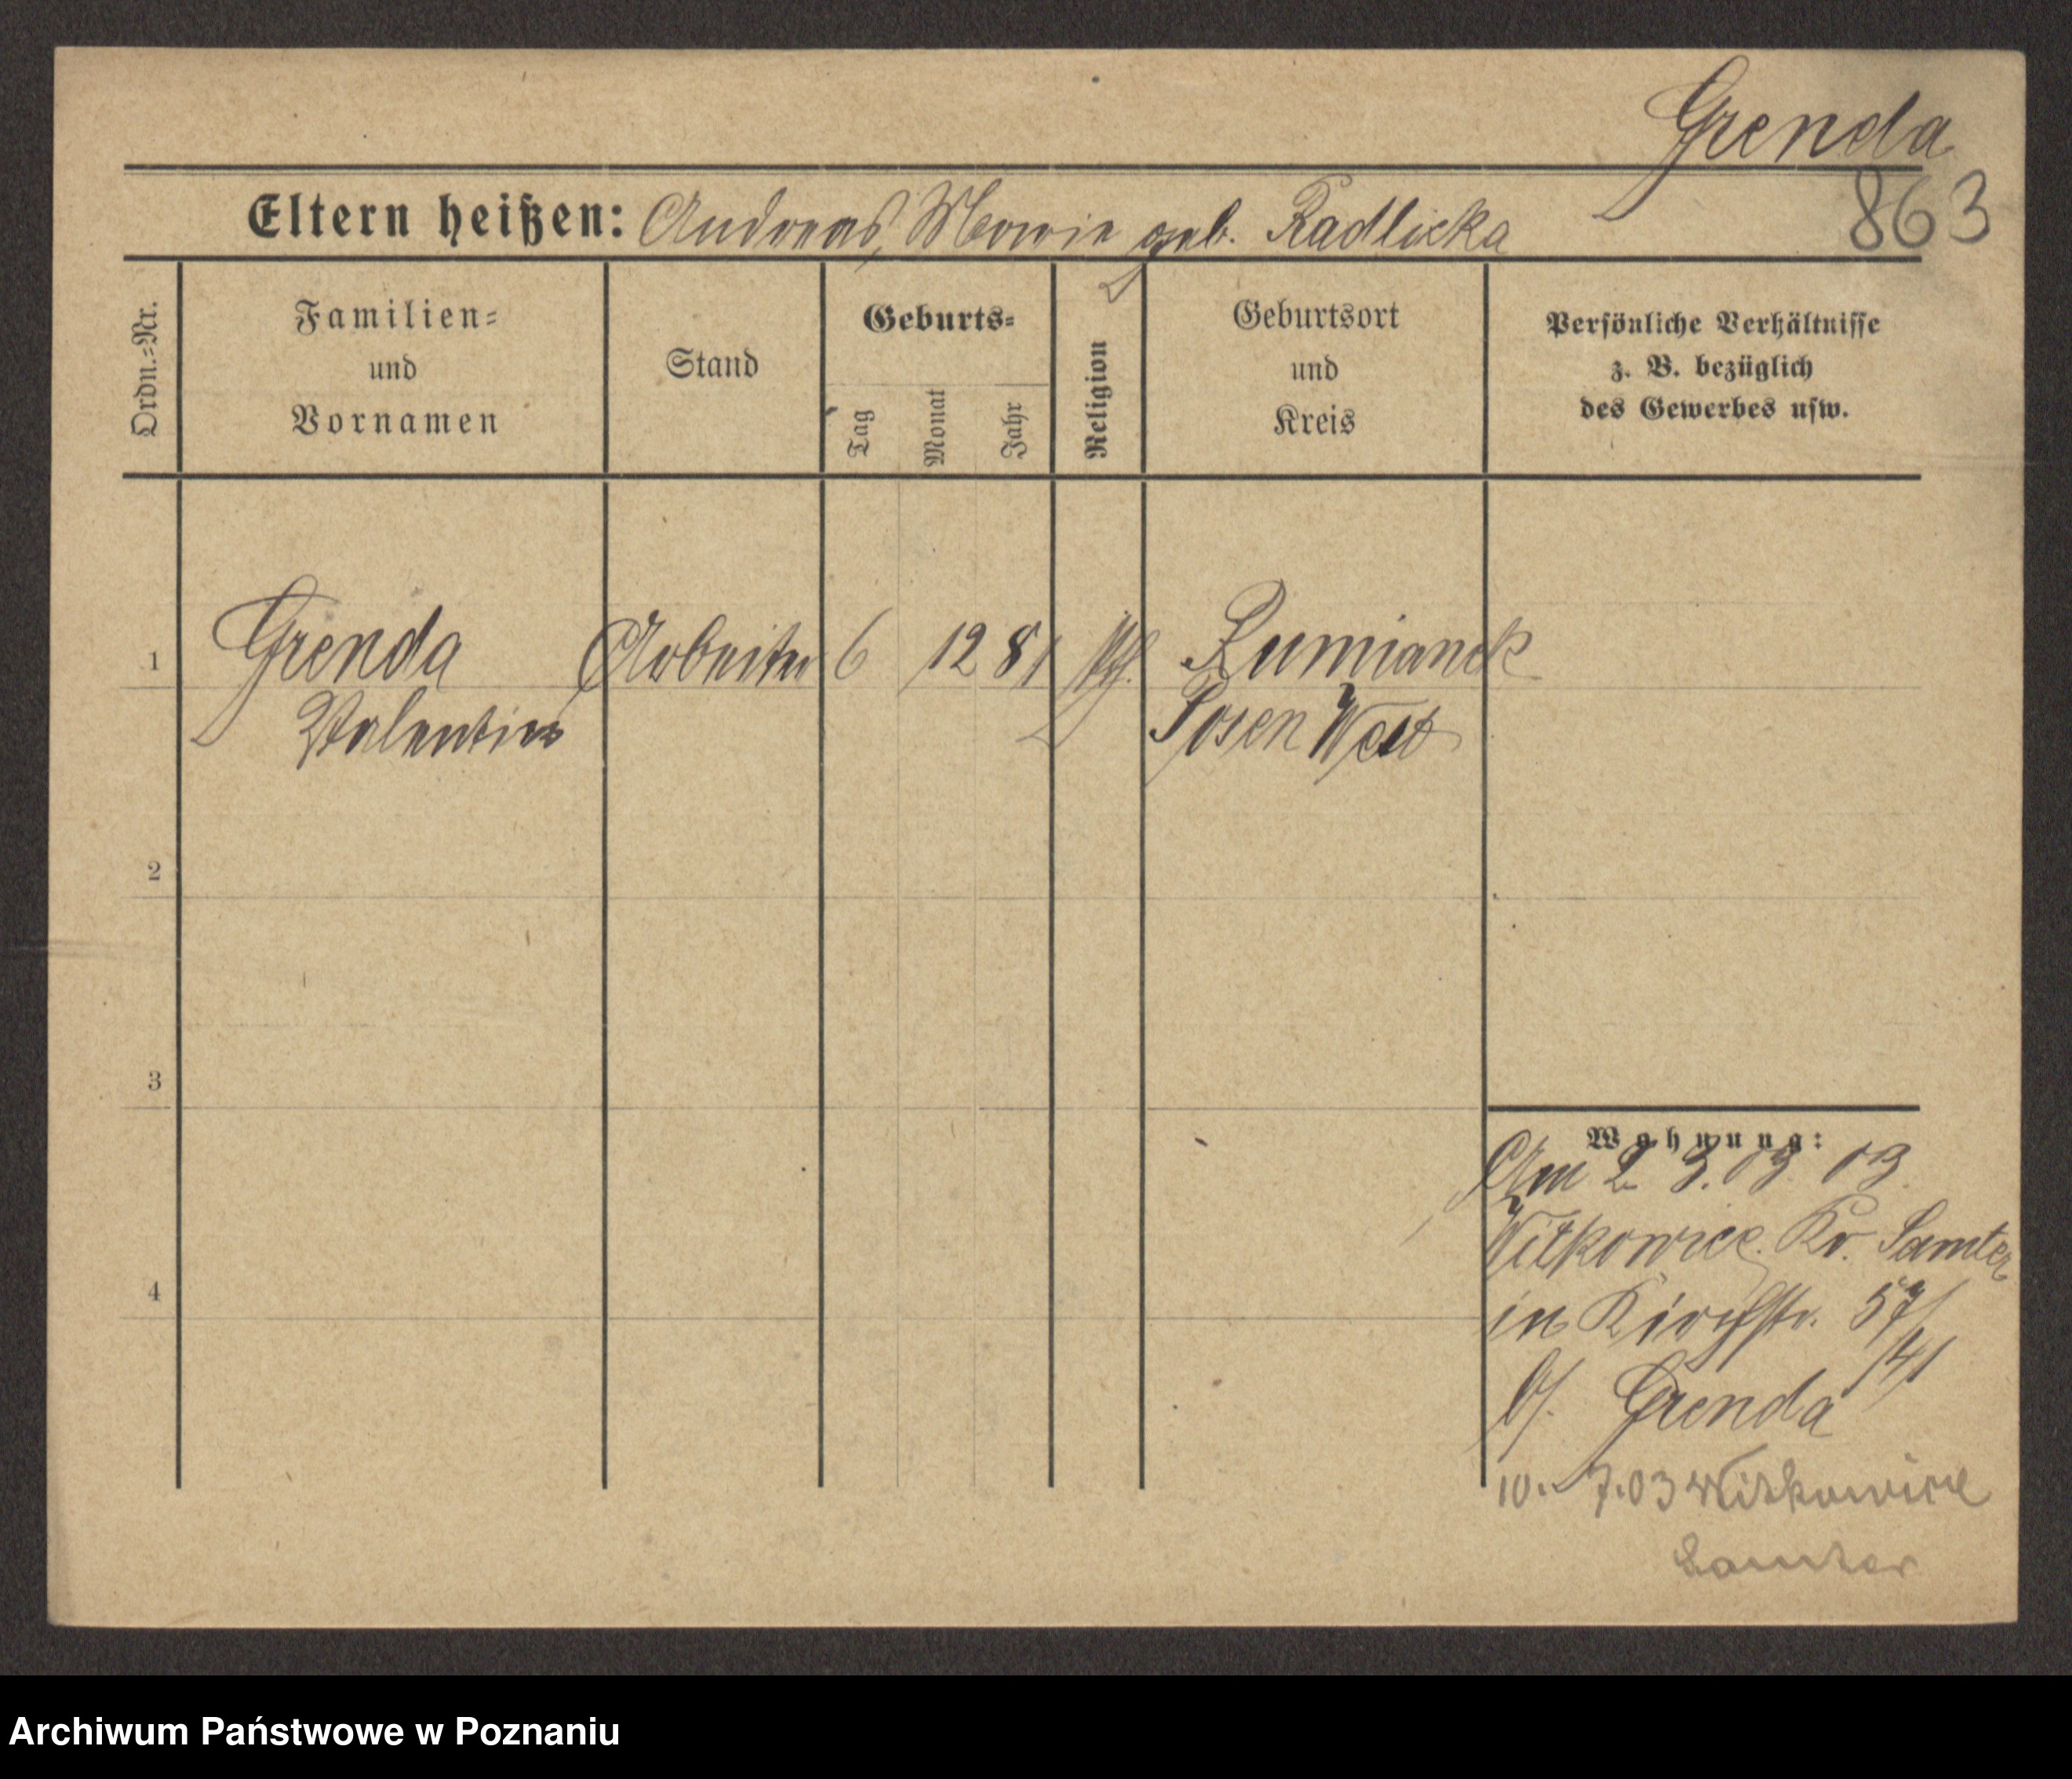 Grenda
863
Eltern heißen: Andreas, Marie geb. Radlicka
Ordn.=Nr.
Familien=
und
Vornamen
Stand
Geburts=
Tag
Monat
Jahr
Religion
Geburtsort
und
Kreis
Persönliche Verhältnisse
z. B. bezüglich
des Gewerbes usw.
1
Grenda Arbeiter 6 12 81 Rumianek
Valentin Posen West
2
3
4
Wohnung:
Am 23.03.03.
Witkowice Kr. Samter
in Kirchstr. 57/
141
b/. Grenda
10. 7.03 Witkowice
Samter
Archiwum Państwowe w Poznaniu